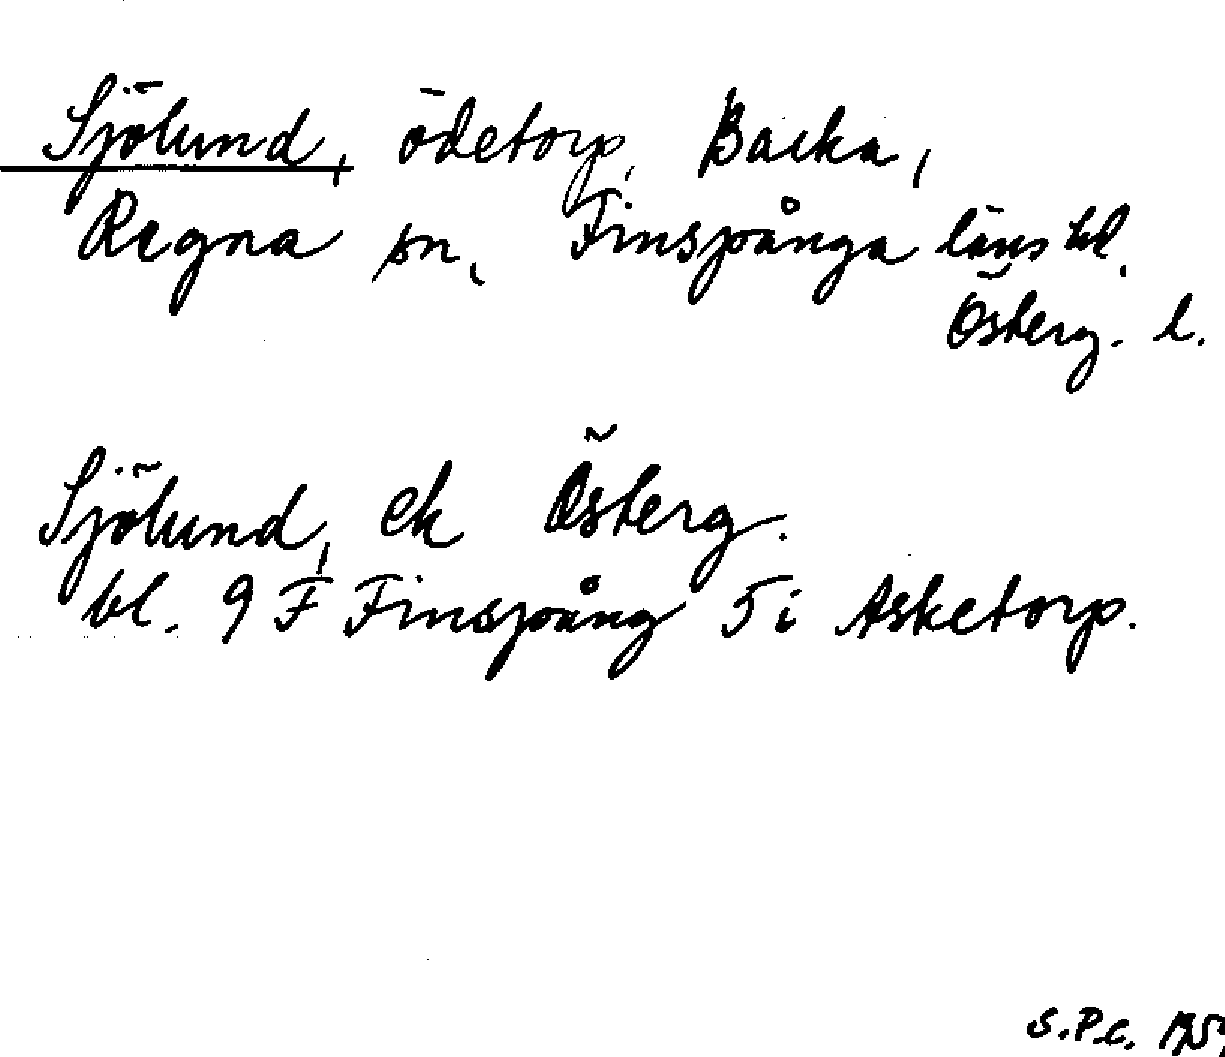 Sjölund, ödetorp, Backa,
Regna sn, Finspånga läns hd.
Österg. l.
Sjölund, ek Österg.
bl. 9 F Finspång 5 i Asketorp.
S.P.C.